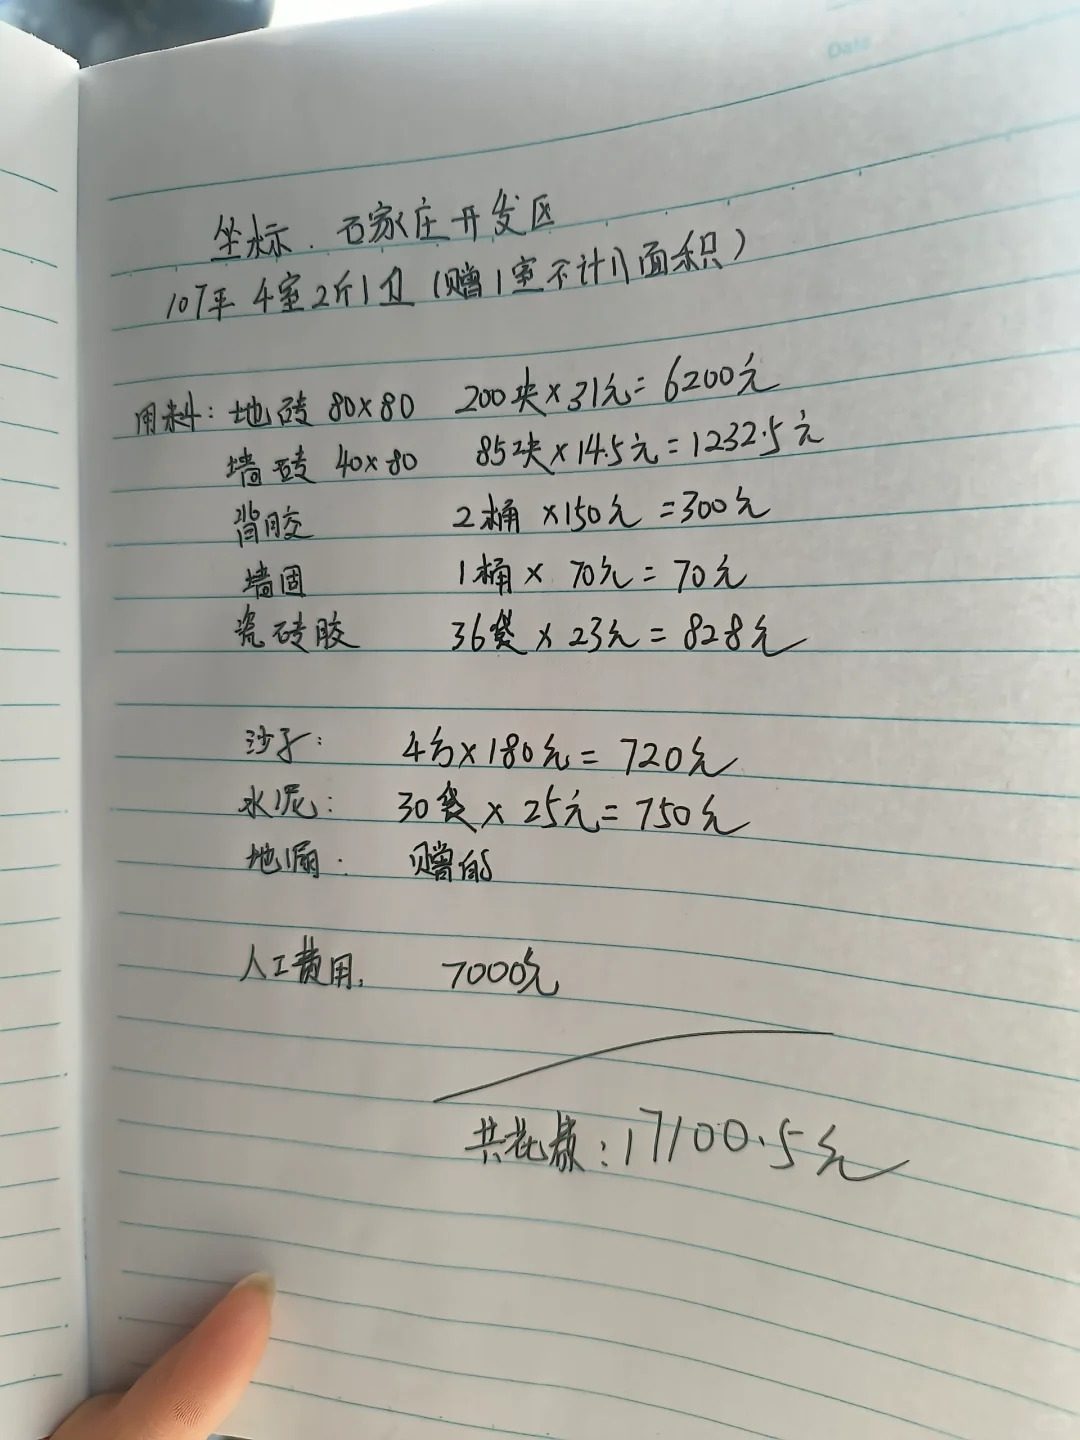 Date
坐标. 石家庄开发区
107平 4室2厅1卫 (赠1室不计入面积)
用料: 地砖 80×80 200块×31元=6200元
墙砖 40×80 85块×14.5元=1232.5元
背胶 2桶×150元=300元
墙固 1桶×70元=70元
瓷砖胶 36袋×23元=828元
沙子: 4方×180元=720元
水泥: 30袋×25元=750元
地漏: 赠的
人工费用. 7000元
共花费: 17100.5元